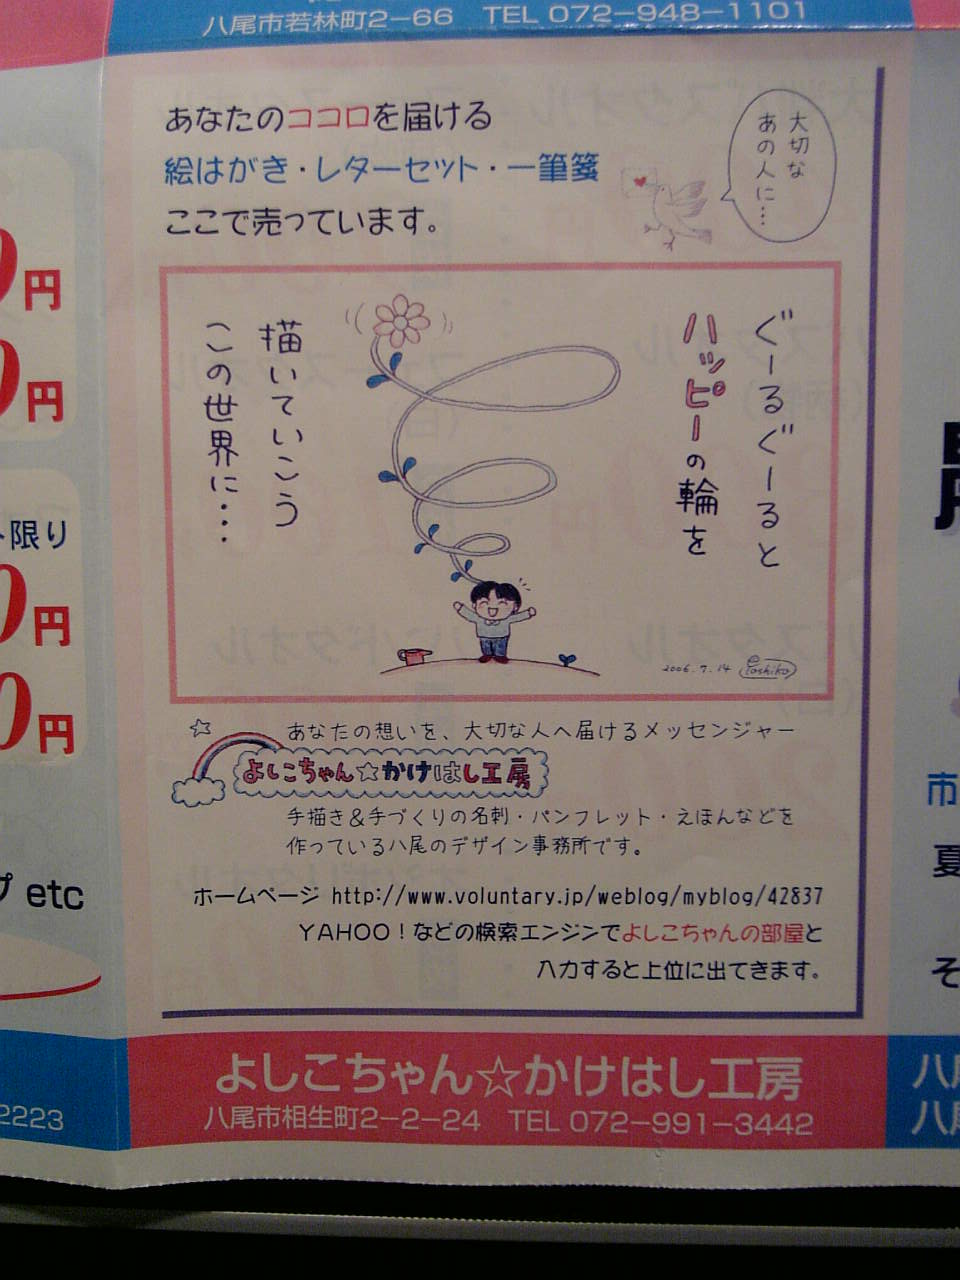 八尾市若林町2-66 TEL 072-948-1101
あなたのココロを届ける
絵はがき・レターセット・一筆箋
ここで売っています。
大切な
あの人に…
ぐーるぐーると
ハッピーの輪を
描いていこう
この世界に…
2006.7.14 Yoshiko
あなたの想いを、大切な人へ届けるメッセンジャー
よしこちゃん☆かけはし工房
手描き&手づくりの名刺・パンフレット・えほんなどを
作っている八尾のデザイン事務所です。
ホームページ http://www.voluntary.jp/weblog/myblog/42837
YAHOO!などの検索エンジンでよしこちゃんの部屋と
入力すると上位に出てきます。
よしこちゃん☆かけはし工房
八尾市相生町2-2-24 TEL 072-991-3442
0円
0円
限り
0円
0円
プ etc
2223
市
夏
そ
八
八